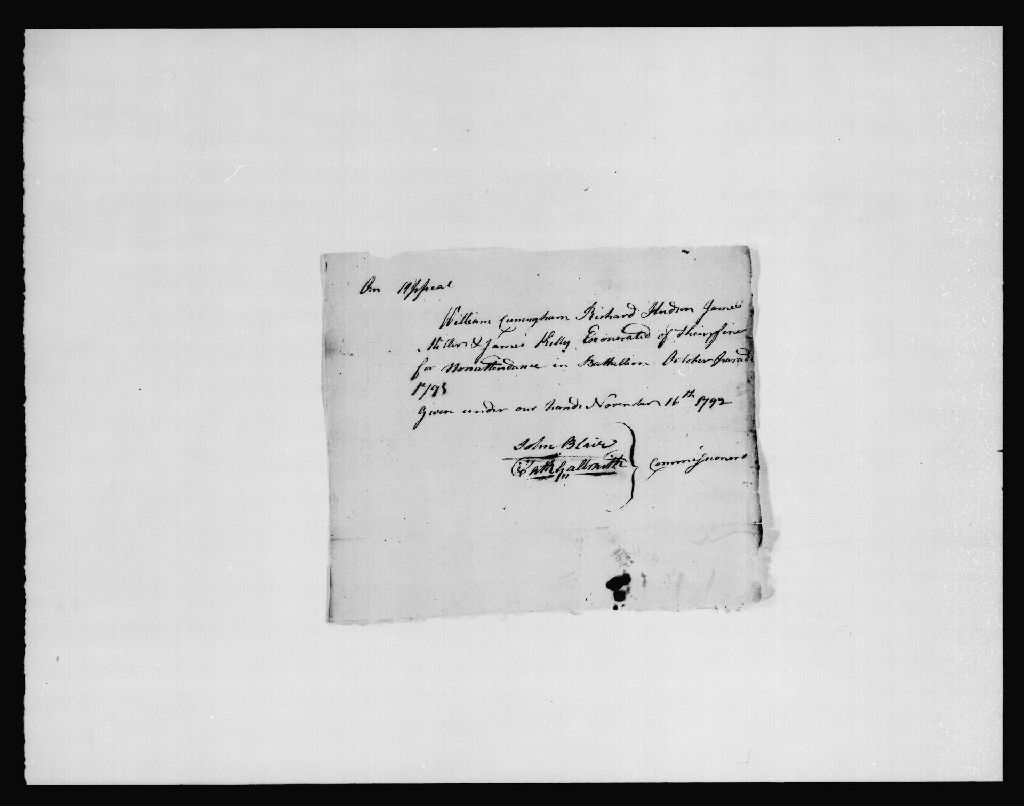 On Appeal
William Cuningham Richard Hudson James
Miller & James Kelly Exonerated of their fine
for Nonattendance in Battallion October Parade
179
Given under our hands November 16th 1792
John Blair
Galbraith
Commissioners